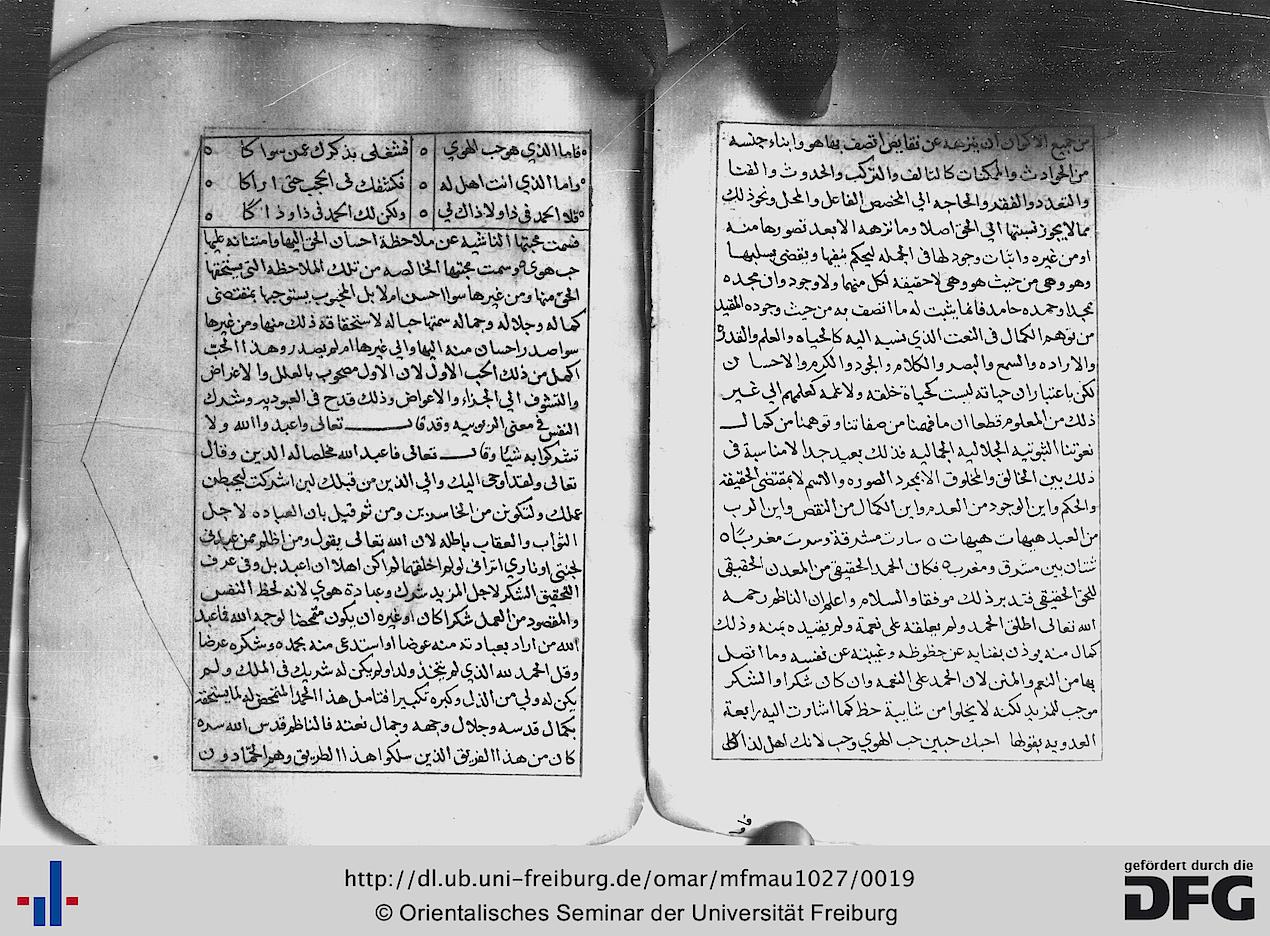 من جميع الاكوان ان ينزهه عن نقايض اتصف بها هو وابناء جنسه
من الحوادث والممكنات كالتالف والتركب والحدوث والفنا
والتعدد والفقد والحاجه الي المخصص الفاعل والمحل ونحو ذلك
مما لا يجوز نسبتها الي الحق اصلا وما نزهه الا بعد تصورها منه
او من غيره واثبات وجود لها في الجمله ليحكم بنفيها ويقضي بسلبها
وهو وهمي من حيث هو وهمي لا حقيقة لكل منهما ولا وجود وان مجده
مجد او حمده حامد فانما يثبت له ما اتصف به من حيث وجوده المقيد
من توهم الكمال في النعت الذي نسبه اليه كالحياه والعلم والقدره
والاراده والسمع والبصر والكلام والجود والكرم والاحسان
لكن باعتبار ان حياته ليست كحياة خلقه ولا علمه كعلمهم الي غير
ذلك من المعلوم قطعا ان ما فهمنا من صفاتنا وتوهمنا من كمال
نعوتنا الثبوتيه الجلاليه الجماليه فذلك بعيد جدا لا مناسبة في
ذلك بين الخالق والمخلوق الا بمجرد الصوره والاسم لا بمقتضي الحقيقة
والحكم واين الوجود من العدم واين الكمال من النقص واين الرب
من العبد هيهات هيهات ه سارت مشرقة وسرت مغربا ه
شتان بين مشرق ومغرب ه فكان الحمد الحقيقي من المعدن الحقيقي
للحق الحقيقي فتدبر ذلك موفقا والسلام واعلم ان الناظم رحمه
الله تعالى اطلق الحمد ولم يعلقه على نعمة ولم يقيده بمنه وذلك
كمال منه يوذن بفنايه عن حظوظه وغيبته عن نفسه وما اتصل
بها من النعم والمنن لان الحمد على النعمه وان كان شكرا والشكر
موجب للمزيد لكنه لا يخلوا من شايبة حظ كما اشارت اليه رابعة
العدويه بقولها احبك حبين حب الهوي وحب لانك اهل لذاكا
فاما
ه فاما الذي هو حب الهوي ه فشغلى بذكرك عمن سواكا ه
ه واما الذي انت اهل له ه فكشفك لى الحجب حتى اراكا ه
ه فلا الحمد في ذا ولا ذاك لي ه ولكن لك الحمد في ذا وذاكا ه
فسمت محبتها الناشيه عن ملاحظة احسان الحق اليها وامتنانه عليها
حب هوي وسمت محبتها الخالصه من تلك الملاحظه التي يستحقها
الحق منها ومن غيرها سوا احسن ام لا بل المحبوب يستوجبها بمقتضى
كماله وجلاله وجماله سمتها حبا له لاستحقاقه ذلك منها ومن غيرها
سوا صدر احسان منه اليها والي غيرها ام لم يصدر وهذا الحب
اكمل من ذلك الحب الاول لان الاول مصحوب بالعلل والاغراض
والتشوف الي الجزاء والاعواض وذلك قدح في العبوديه وشرك
النفس في معنى الربوبيه وقد قال تعالى واعبدوا الله ولا
تشركوا به شيئا وقال تعالى فاعبد الله مخلصا له الدين وقال
تعالى ولقد اوحى اليك والي الذين من قبلك لين اشركت ليحبطن
عملك ولتكونن من الخاسرين ومن ثم قيل بان العباده لاجل
الثواب والعقاب باطله لان الله تعالى يقول ومن اظلم ممن عبدني
لجنتي او ناري اتراني لو لم اخلقهما لم اكن اهلا ان اعبد بل وفي عرف
التحقيق الشكر لاجل المزيد شرك وعبادة هوي لانه لحظ النفس
والمقصود من العمل شكرا كان او غيره ان يكون متمحضا لوجه الله فما عبد
الله من اراد بعبادته منه عوضا او استدعى منه بحمده وشكره عرضا
وقل الحمد لله الذي لم يتخذ ولدا ولم يكن له شريك في الملك ولم
يكن له ولي من الذل وكبره تكبيرا فتامل هذا الحمد المتمحض له لما يستحقه
بكمال قدسه وجلال وجهه وجمال نعته فالناظم قدس الله سره
كان من هذا الفريق الذين سلكوا هذا الطريق وهم الحمادون
http://dl.ub.uni-freiburg.de/omar/mfmau1027/0019
© Orientalisches Seminar der Universität Freiburg
gefördert durch die
DFG